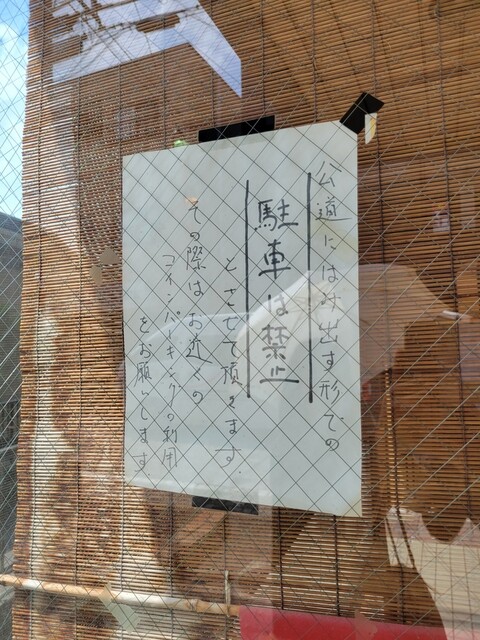 公道にはみ出す形での
駐車は禁止
とさせて頂きます。
その際はお近くの
コインパーキングの利用
をお願いします